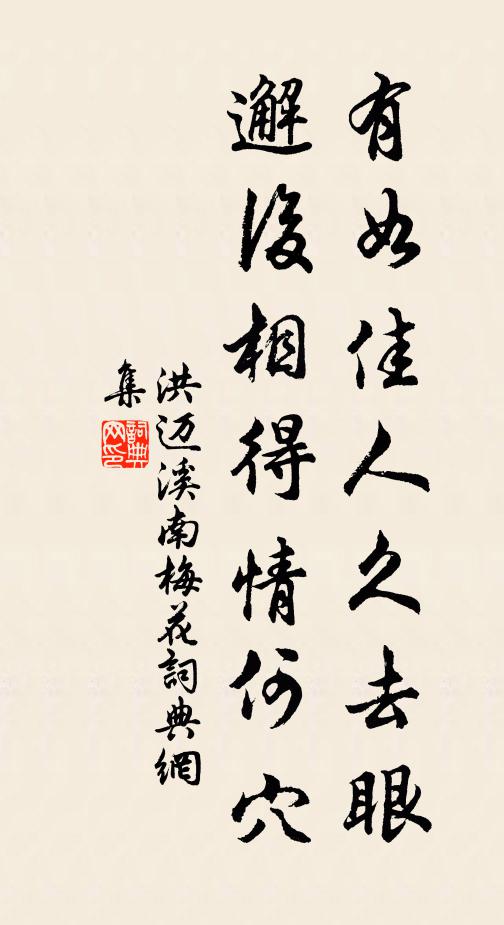 有如佳人久去眼
邂後相得情何穴
洪迈溪南梅花詞典網
集
詞典网印